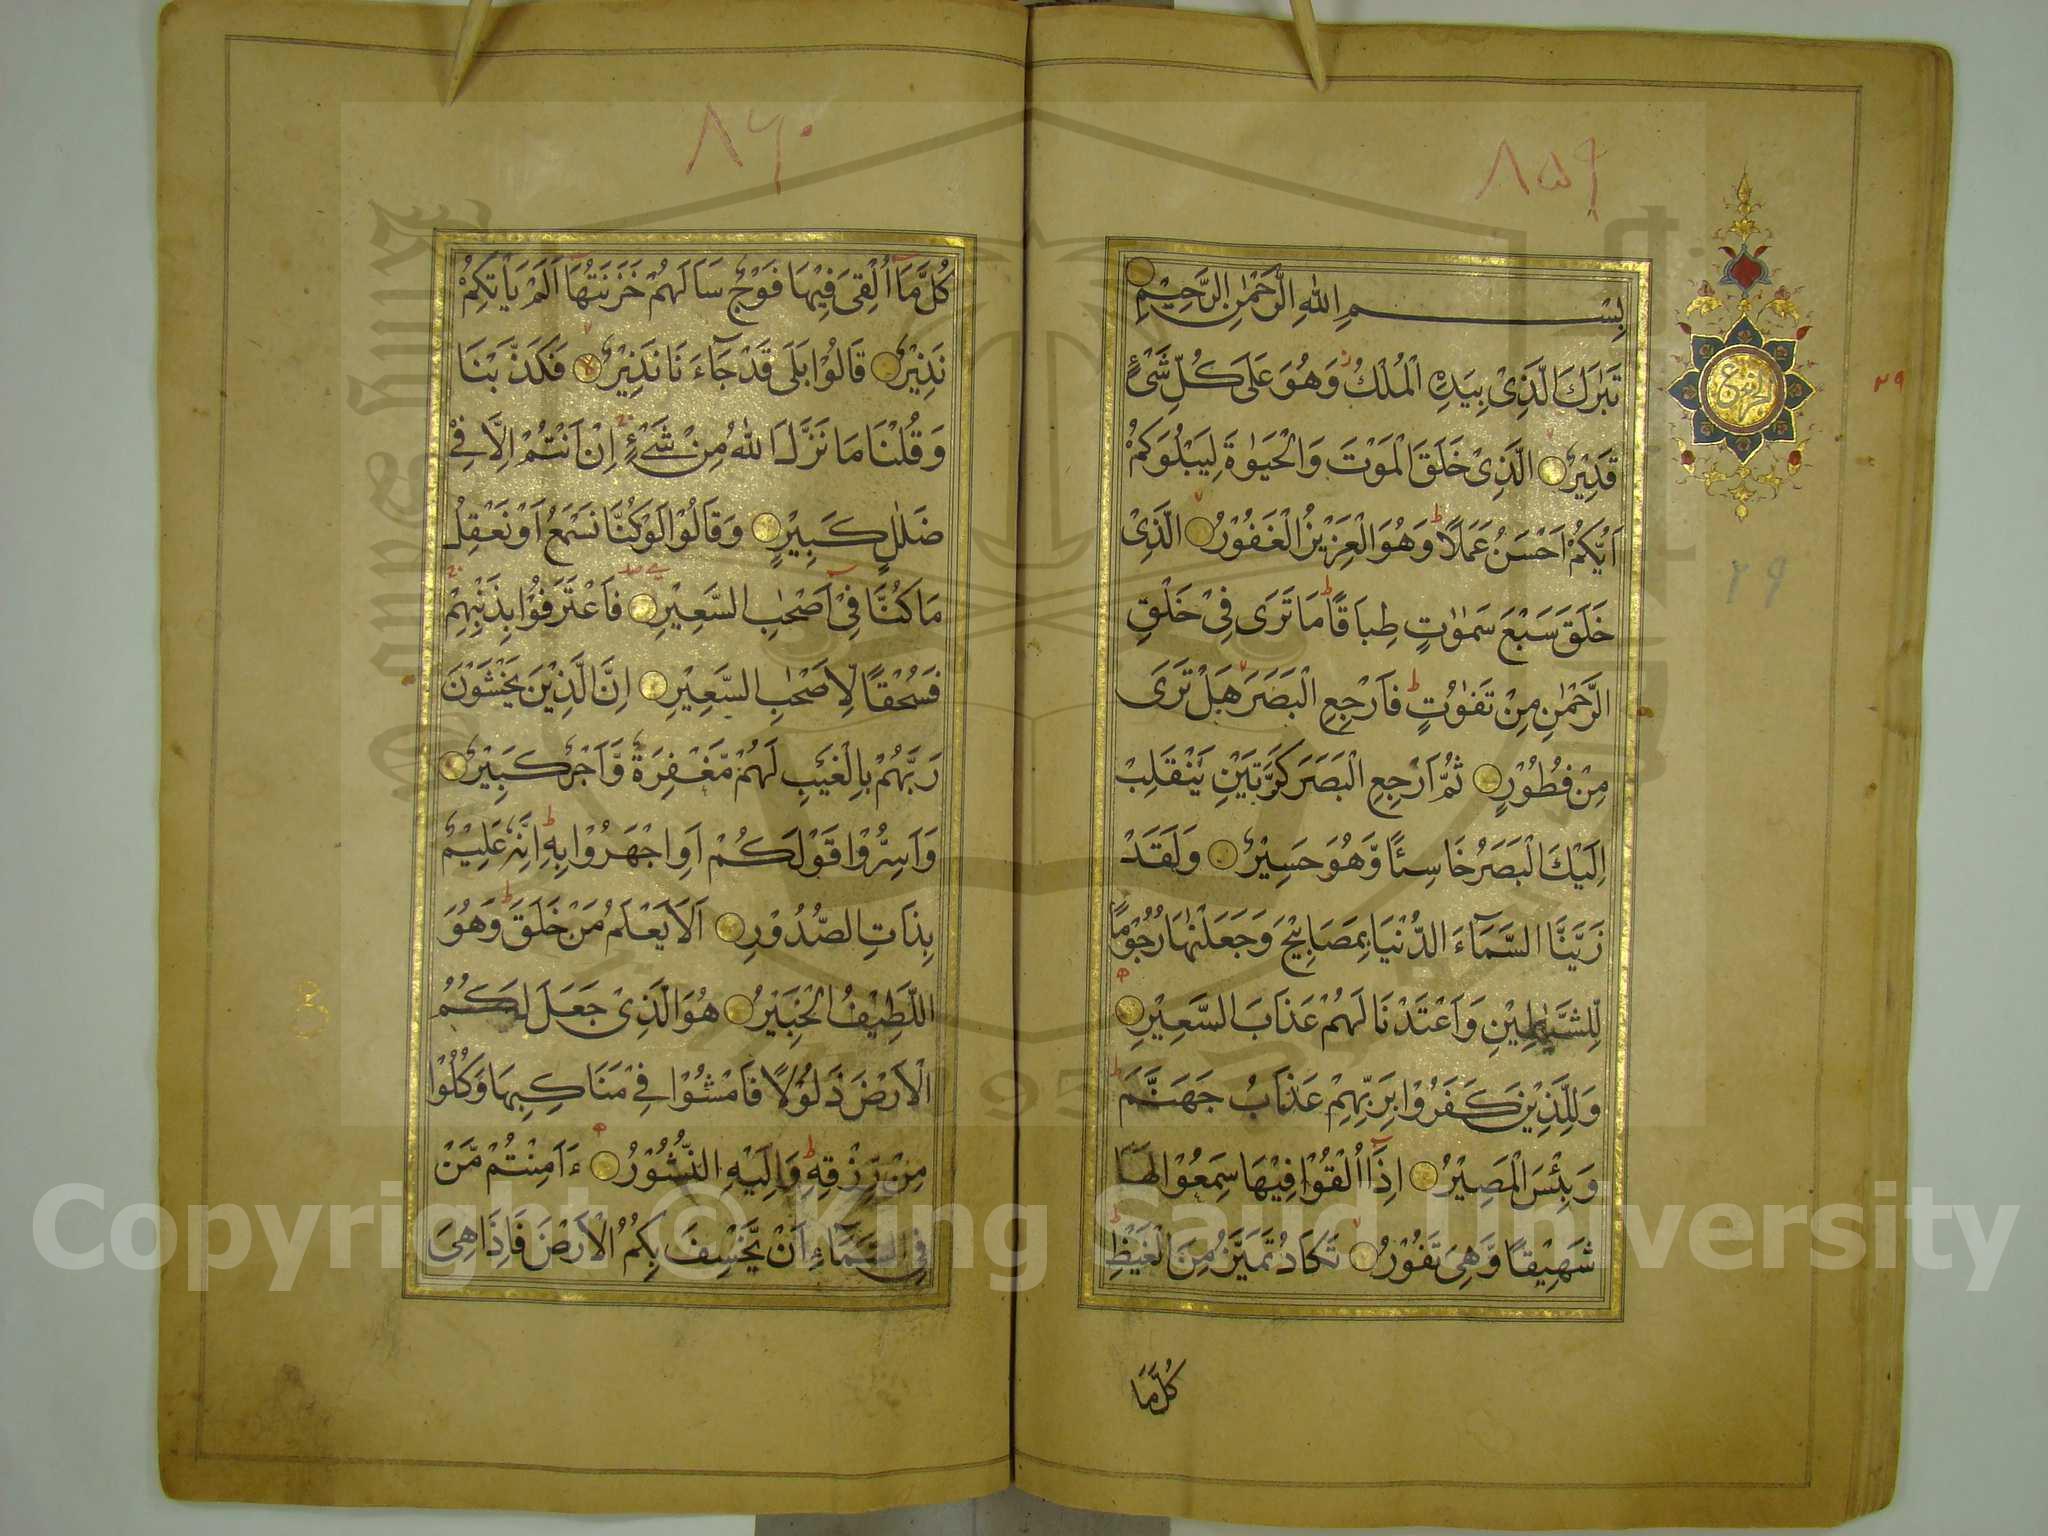 ٨٥٩
بِسْمِ اللهِ الرَّحْمٰنِ الرَّحِيْمِ
تَبٰرَكَ الَّذِىْ بِيَدِهِ الْمُلْكُ وَهُوَ عَلَى كُلِّ شَىْءٍ
قَدِيْرٌ الَّذِىْ خَلَقَ الْمَوْتَ وَالْحَيٰوةَ لِيَبْلُوَكُمْ
اَيُّكُمْ اَحْسَنُ عَمَلًا وَهُوَ الْعَزِيْزُ الْغَفُوْرُ الَّذِىْ
خَلَقَ سَبْعَ سَمٰوٰتٍ طِبَاقًا مَا تَرَى فِىْ خَلْقِ
الرَّحْمٰنِ مِنْ تَفٰوُتٍ فَارْجِعِ الْبَصَرَ هَلْ تَرَى
مِنْ فُطُوْرٍ ثُمَّ ارْجِعِ الْبَصَرَ كَرَّتَيْنِ يَنْقَلِبْ
اِلَيْكَ الْبَصَرُ خَاسِئًا وَّهُوَ حَسِيْرٌ وَلَقَدْ
زَيَّنَّا السَّمَآءَ الدُّنْيَا بِمَصَابِيْحَ وَجَعَلْنٰهَا رُجُوْمًا
لِّلشَّيٰطِيْنِ وَاَعْتَدْنَا لَهُمْ عَذَابَ السَّعِيْرِ
وَلِلَّذِيْنَ كَفَرُوْا بِرَبِّهِمْ عَذَابُ جَهَنَّمَ
وَبِئْسَ الْمَصِيْرُ اِذَآ اُلْقُوْا فِيْهَا سَمِعُوْا لَهَا
شَهِيْقًا وَّهِىَ تَفُوْرُ تَكَادُ تَمَيَّزُ مِنَ الْغَيْظِ
كُلَّمَا
٢٩
٢٩
٨٦٠
كُلَّمَآ اُلْقِىَ فِيْهَا فَوْجٌ سَاَلَهُمْ خَزَنَتُهَآ اَلَمْ يَاْتِكُمْ
نَذِيْرٌ قَالُوْا بَلَى قَدْ جَآءَنَا نَذِيْرٌ فَكَذَّبْنَا
وَقُلْنَا مَا نَزَّلَ اللهُ مِنْ شَىْءٍ اِنْ اَنْتُمْ اِلَّا فِىْ
ضَلٰلٍ كَبِيْرٍ وَقَالُوْا لَوْ كُنَّا نَسْمَعُ اَوْ نَعْقِلُ
مَا كُنَّا فِىْ اَصْحٰبِ السَّعِيْرِ فَاعْتَرَفُوْا بِذَنْبِهِمْ
فَسُحْقًا لِّاَصْحٰبِ السَّعِيْرِ اِنَّ الَّذِيْنَ يَخْشَوْنَ
رَبَّهُمْ بِالْغَيْبِ لَهُمْ مَّغْفِرَةٌ وَّاَجْرٌ كَبِيْرٌ
وَاَسِرُّوْا قَوْلَكُمْ اَوِ اجْهَرُوْا بِهِ اِنَّهُ عَلِيْمٌ
بِذَاتِ الصُّدُوْرِ اَلَا يَعْلَمُ مَنْ خَلَقَ وَهُوَ
اللَّطِيْفُ الْخَبِيْرُ هُوَ الَّذِىْ جَعَلَ لَكُمُ
الْاَرْضَ ذَلُوْلًا فَامْشُوْا فِىْ مَنَاكِبِهَا وَكُلُوْا
مِنْ رِّزْقِهِ وَاِلَيْهِ النُّشُوْرُ ءَاَمِنْتُمْ مَّنْ
فِى السَّمَآءِ اَنْ يَّخْسِفَ بِكُمُ الْاَرْضَ فَاِذَا هِىَ
Copyright © King Saud University